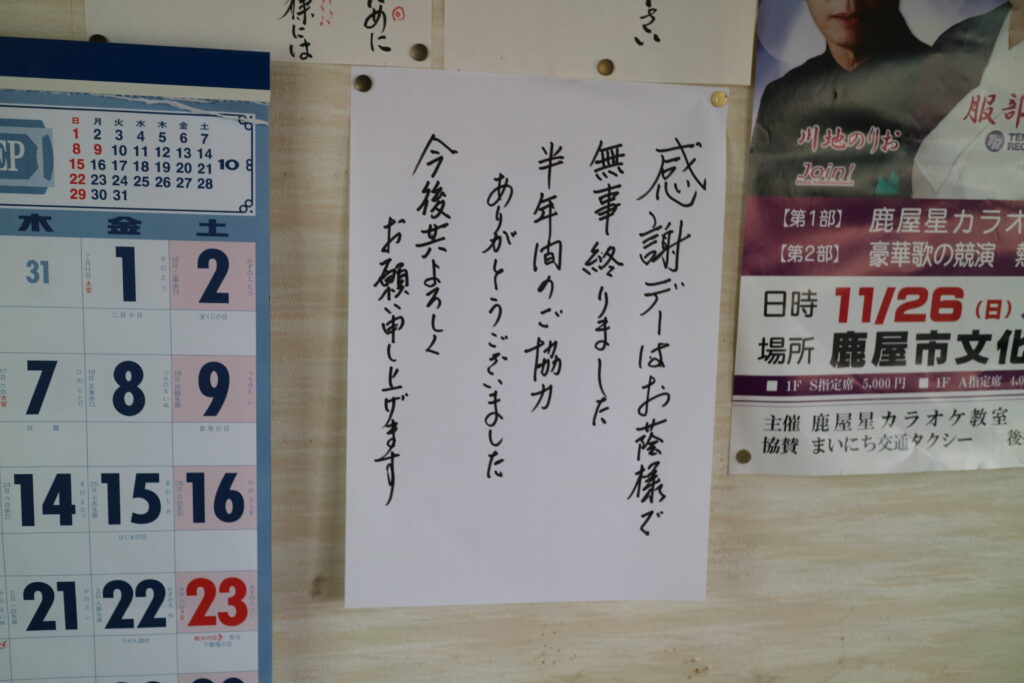 様には
ために
さい
感謝デーはお蔭様で
無事終りました
半年間のご協力
ありがとうございました
今後共よろしく
お願い申し上げます
EP
日 月 火 水 木 金 土
1 2 3 4 5 6 7
8 9 10 11 12 13 14
15 16 17 18 19 20 21
22 23 24 25 26 27 28
29 30 31
10
木 金 土
31 1 2
二百十日 宝くじの日
7 8 9
白露 救急の日
14 15 16
ひじきの日
21 22 23
秋分の日
川地のりお
Join!
服部
【第1部】 鹿屋星カラオ
【第2部】 豪華歌の競演
日時 11/26(日)
場所 鹿屋市文化
■ 1F S指定席 5,000円 ■ 1F A指定席 4,0
主催 鹿屋星カラオケ教室
協賛 まいにち交通タクシー 後